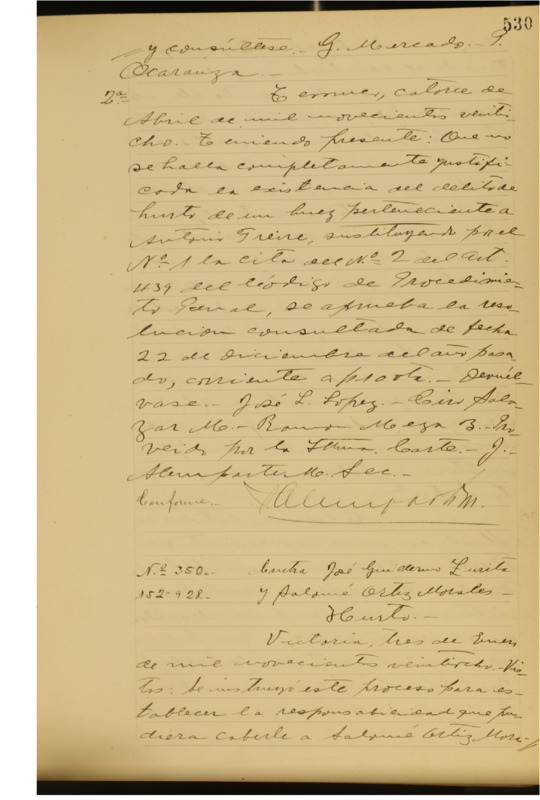 530
y consúltese.- G. Mercado.- P.
Ocaranza.-
2ª.- Temuco, catorce de
Abril de mil novecientos veintio
cho. Teniendo presente: Que no
se halla completamente justifi
cada la existencia del delito de
hurto de un buey perteneciente a
Antonio Freire, sustituyendo por el
Nº 1 la cita del Nº 2 del art.
439 del Código de Procedimien
to Penal, se aprueba la reso
lución consultada de fecha
22 de diciembre del año pasa
do, corriente a f 100 vta.- Devuél
vase.- José L. Lopez.- Ciro Sala
zar M.- Ramon Meza B.- Pro
veido por la Iltma. Corte.- J.
Alemparte M. Sec.-
Conforme.-
Nº 350.- Contra José Guillermo Zurita
152-928.- y Salomé Ortiz Morales-
Hurto.-
Victoria, tres de Enero
de mil novecientos veintiocho.- Vis
tos: Se instruyó este proceso para es-
tablecer la responsabilidad que pu
diera caberle a Salomé Ortiz Mora-